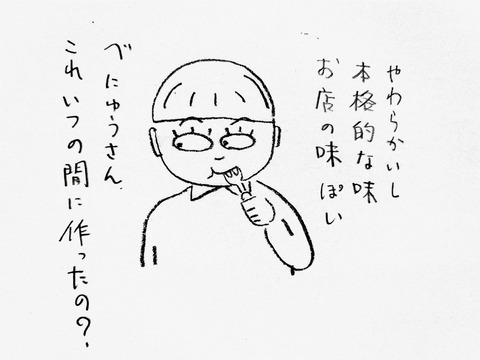 やわらかいし
本格的な味
お店の味ぽい
べにゅうさん、
これいつの間に作ったの?